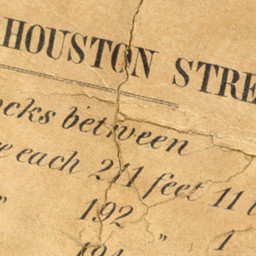 HOUSTON STRE
ocks between
e each 211 feet 11 i
" 192 " 1
191